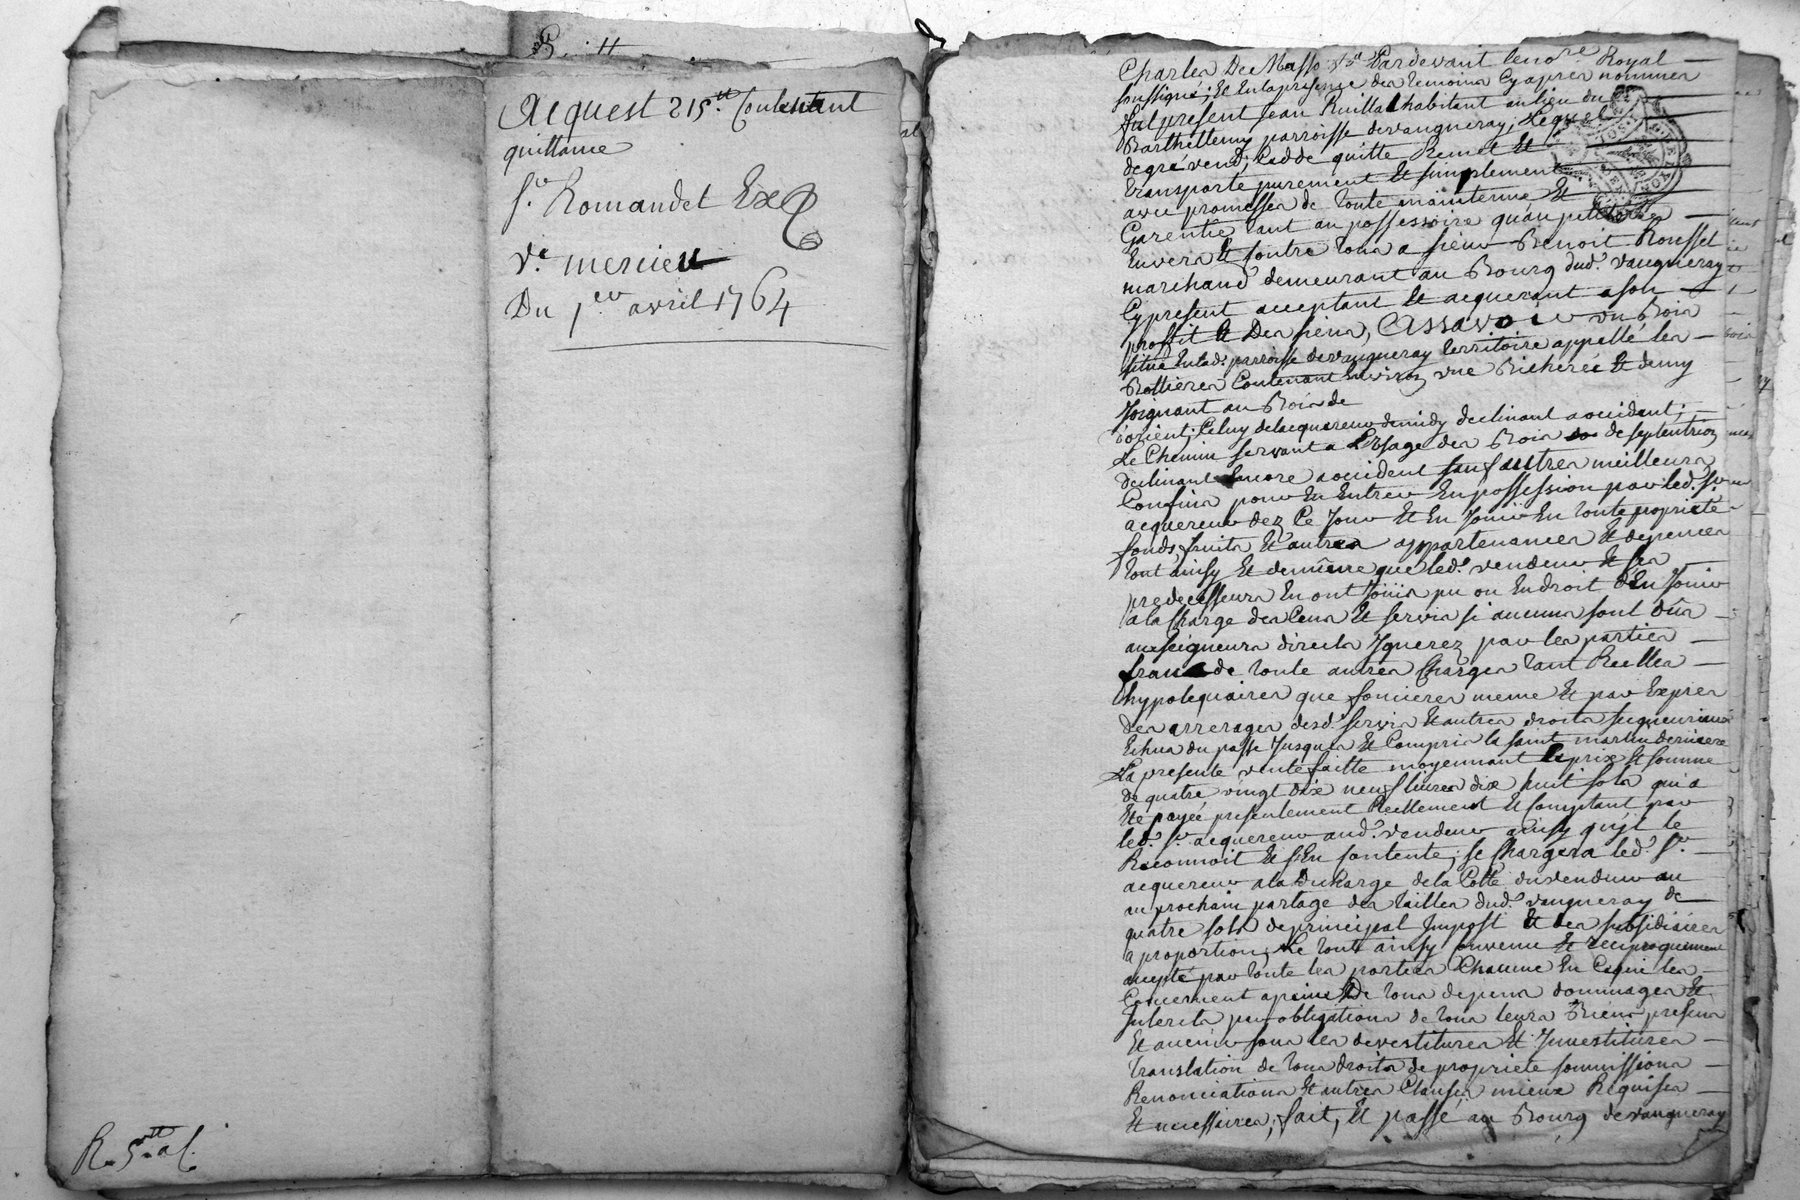 Acquest 215.tt Contenant
quittance
S.r Romandet Ex
V.e mercieu
Du 1.er avril 1764
R. 5.tt a C.
Charles De Masso &a Pardevant le no.re Royal
soussigné; Et En la presence des temoins Cy apres nommes
fut present jean Ruillat habitant au lieu du
Barthellemy parroisse de vaugneray; Lequel
de gré vend, Cedde quitte Remet Et
transporte purement Et simplement
avec promesses de toute maintenue Et
Garentie tant au possessoire quau petitoire
Envers Et Contre tous a sieur Benoit Rousset
marchand demeurant au Bourg dud.t vaugneray
Cy present acceptant Et acquerant a son
proffit Et Des siens, Assavoir un Bois
situé En lad. parroisse de vaugneray territoire appellé les
Rottieres Contenant Environ une Bicherée Et demy
Joignant au Bois de
l'orient; Celuy de lacquereur de midy declinant a occident;
Le Chemin servant a L'Usage des Bois de septentrion
declinant Encore a occident sauf autres meilleurs
Confins pour En Entrer En possession par led. Sr.
acquereur dez Ce Jour Et En Jouir En toute propriete
fonds, fruits Et autres appartenances Et dependces
tout ainsy Et de meme que led. vendeur Et ses
predecesseurs En ont Jouis pu ou En droit d'En Jouir
a la Charge des Cens Et servis si aucuns sont dûs
aux seigneurs directs Ignorez par les parties
franc de toute autres Charges tant Reelles
hypotequaires que foncieres meme Et par Exprès
des arrerages desd. servis Et autres droits seigneuriaux
Echus du passé Jusques Et Compris la saint martin derniere
La presente vente faitte moyennant le prix Et somme
de quatre vingt dix neuf livres dix huit sols qui a
Eté payée presentement Reellement Et Comptant par
led. Sr. acquereur aud. vendeur ainsy qu'jl le
Reconnoit Et s'En Contente; se Chargera led. Sr.
acquereur a la Decharge de la Cotte du vendeur au
au prochain partage des tailles dud. vaugneray de
quatre sols de principal Impost Et des subsidiaires
a proportion; Le tout ainsy Convenu Et reciproquement
accepté par toute les parties Chacune En Ce qui les
Concernent a peine De tous depens dommages Et
Interets par obligations de tous leurs Biens presens
Et avenir sous les devestitures Et Jnvestitures
translation de tous droits de propriete soumissions
Renonciations Et autres Clauses mieux Requises
Et necessaires; fait, Et passé au Bourg de vaugneray